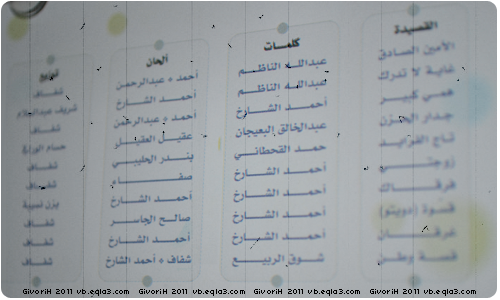 القصيدة كلمات ألحان توزيع
الأمين الصادق عبدالله الناظم أحمد + عبدالرحمن شفاف
غاية لا تدرك عبدالله الناظم أحمد الشارخ شريف عبدالسلام
همي كبير أحمد الشارخ أحمد + عبدالرحمن شفاف
جدار الحزن عبدالخالق البعيجان عقيل العقيل حسام
تاج الفرايد حمد القحطاني بندر الحليبي شفاف
زوجتي أحمد الشارخ صفاء شفاف
فرقاك أحمد الشارخ أحمد الشارخ يزن نسيبة
قسوة (دويتو) أحمد الشارخ صالح الجاسر شفاف
غرقان أحمد الشارخ أحمد الشارخ شفاف
قصة وطن شوق الربيع شفاف + أحمد الشارخ شفاف
GivoriH 2011 vb.eqla3.com GivoriH 2011 vb.eqla3.com GivoriH 2011 vb.eqla3.com GivoriH 2011 vb.eqla3.com